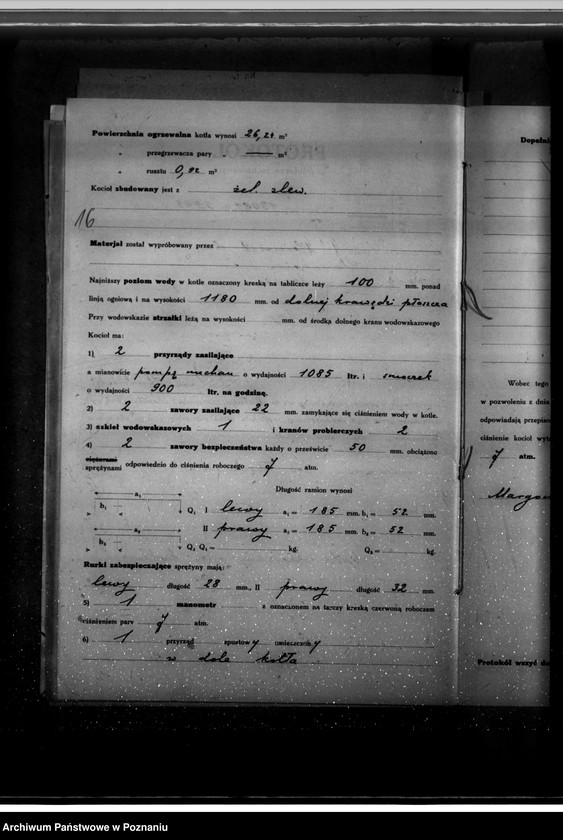 Powierzchnia ogrzewalna kotła wynosi 26,21 m²
" przegrzewacza pary " — m²
" rusztu 0,92 m²
Kocioł zbudowany jest z żel. zlew.
16
Materjał został wypróbowany przez
Najniższy poziom wody w kotle oznaczony kreską na tabliczce leży 100 mm. ponad
linją ogniową i na wysokości 1180 mm. od dolnej krawędzi płaszcza
Przy wodowskazie strzałki leżą na wysokości mm. od środka dolnego kranu wodowskazowego
Kocioł ma:
1) 2 przyrządy zasilające
a mianowicie pompę mechan o wydajności 1085 ltr. i smoczek
o wydajności 900 ltr. na godzinę.
2) 2 zawory zasilające 22 mm. zamykające się ciśnieniem wody w kotle.
3) szkieł wodowskazowych 1 i kranów probierczych 2
4) 2 zawory bezpieczeństwa każdy o prześwicie 50 mm. obciążono
ciężarami
sprężynami odpowiednio do ciśnienia roboczego 7 atm.
Długość ramion wynosi
a₁ b₁ Q₁ I lewy a₁ = 185 mm. b₁ = 52 mm.
a₂ b₂ II prawy a₂ = 185 mm. b₂ = 52 mm.
Q₂ Q₁ = kg. Q₂ = kg.
Rurki zabezpieczające sprężyny mają:
lewy długość 28 mm., II prawy długość 32 mm
5) 1 manometr z oznaczonem na tarczy kreską czerwoną roboczem
ciśnieniem pary 7 atm.
6) 1 przyrząd spustowy umieszczony
w dole kotła
Dopełni
Wobec tego
w pozwoleniu z dnia
odpowiadają przepiso
ciśnienie kocioł wyt
7 atm.
Margon
Protokół wszyć do
Archiwum Państwowe w Poznaniu